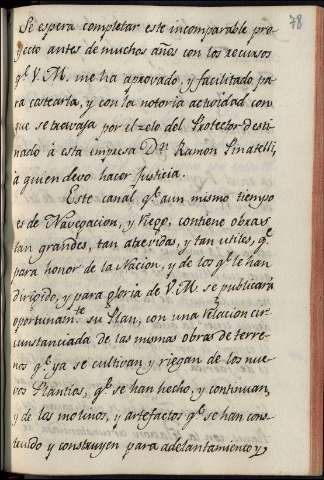 78
Se espera completar este incomparable pro
yecto antes de muchos años con los recursos
qᵉ V. M. me ha aprovado, y facilitado pa
ra costearla, y con la notoria actividad con
que se travaja por el zelo del Protector desti
nado à esta impresa Dⁿ. Ramon Pinatelli,
à quien devo hacer Justicia.
Este canal qᵉ a un mismo tiempo
es de Navegacion, y riego, contiene obras
tan grandes, tan atrevidas, y tan utiles, qᵉ
para honor de la Nacion, y de los qᵉ le han
dirigido, y para gloria de V. M. se publicará
oportunamᵗᵉ su Plan, con una relacion cir
cunstanciada de las mismas obras de terre
nos qᵉ ya se cultivan y riegan de los nue
vos Plantios, qᵉ se han hecho, y continuan,
y de los molinos, y artefactos qᵉ se han cons
truido y construyen para adelantamiento y